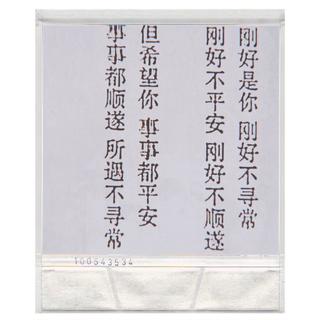 刚好是你 刚好不寻常
刚好不平安 刚好不顺遂
但希望你 事事都平安
事事都顺遂 所遇不寻常
100543534